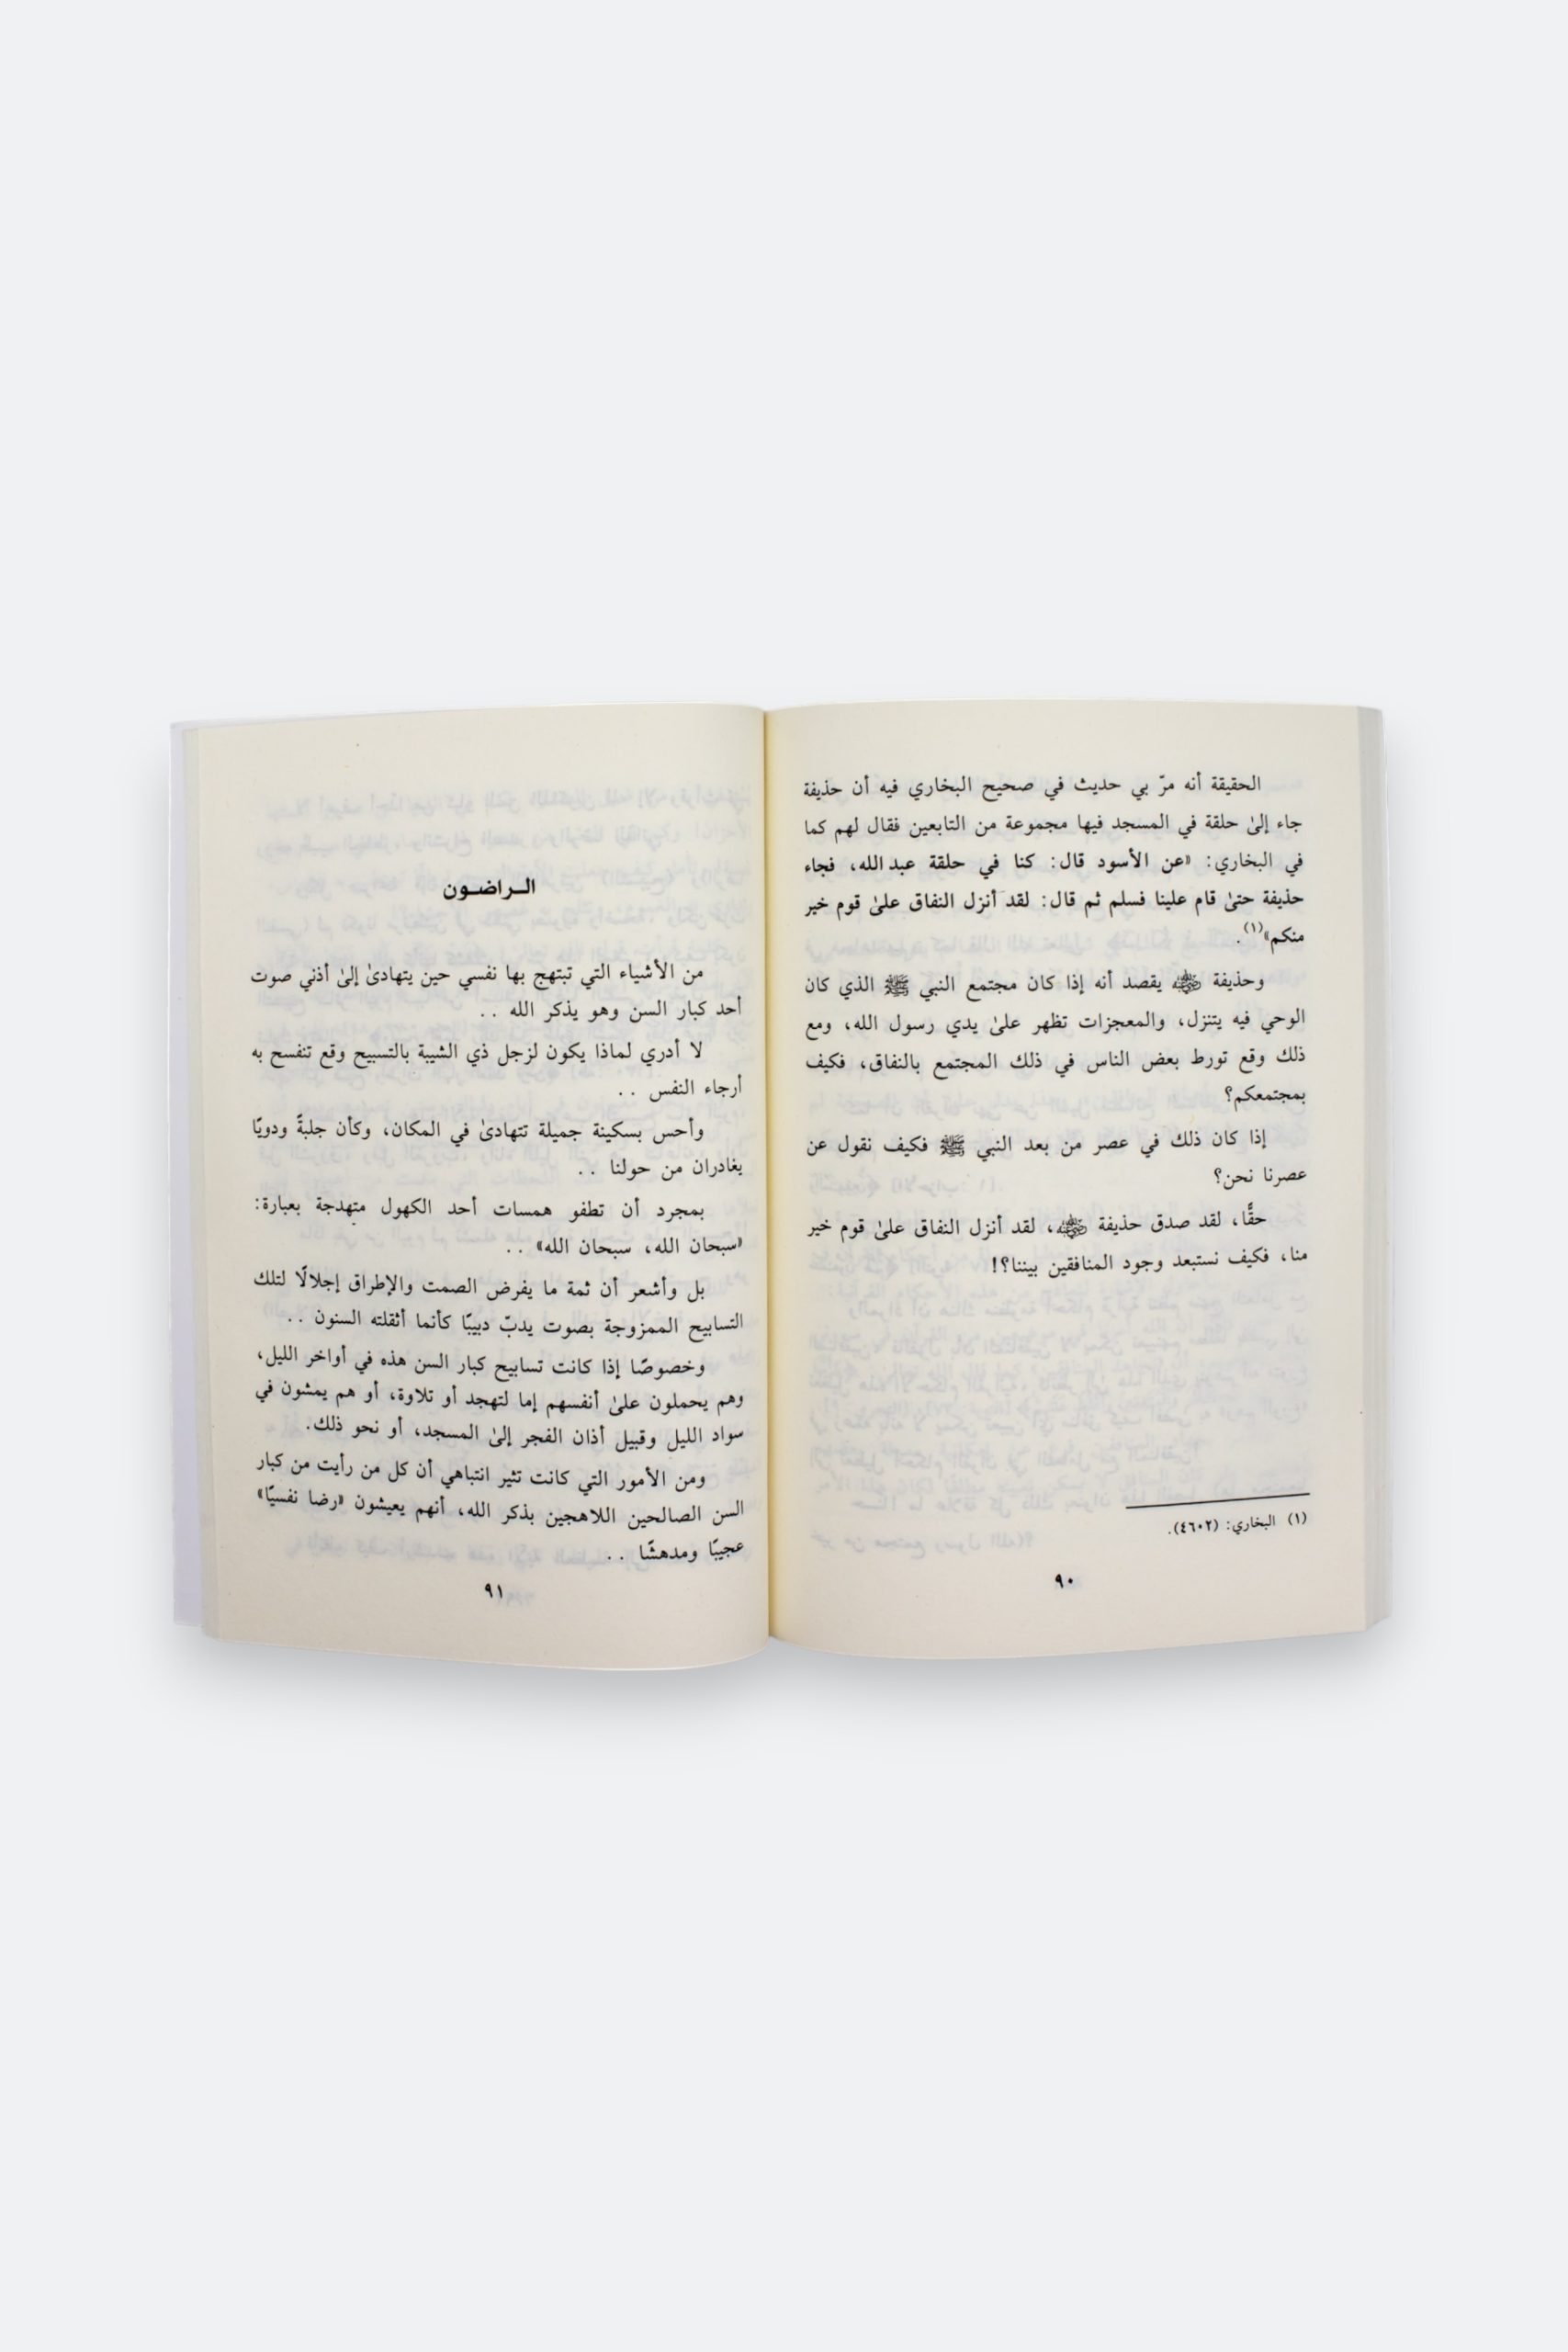 الحقيقة أنه مرّ بي حديث في صحيح البخاري فيه أن حذيفة
جاء إلىٰ حلقة في المسجد فيها مجموعة من التابعين فقال لهم كما
في البخاري: «عن الأسود قال: كنا في حلقة عبد الله، فجاء
حذيفة حتىٰ قام علينا فسلم ثم قال: لقد أنزل النفاق علىٰ قوم خير
منكم»(١).
وحذيفة رضي الله عنه يقصد أنه إذا كان مجتمع النبي ﷺ الذي كان
الوحي فيه يتنزل، والمعجزات تظهر علىٰ يدي رسول الله، ومع
ذلك وقع تورط بعض الناس في ذلك المجتمع بالنفاق، فكيف
بمجتمعكم؟
إذا كان ذلك في عصر من بعد النبي ﷺ فكيف نقول عن
عصرنا نحن؟
حقًّا، لقد صدق حذيفة رضي الله عنه، لقد أنزل النفاق علىٰ قوم خير
منا، فكيف نستبعد وجود المنافقين بيننا؟!
(١) البخاري: (٤٦٠٢).
٩٠
الـراضـون
من الأشياء التي تبتهج بها نفسي حين يتهادىٰ إلىٰ أذني صوت
أحد كبار السن وهو يذكر الله ..
لا أدري لماذا يكون لزجل ذي الشيبة بالتسبيح وقع تنفسح به
أرجاء النفس ..
وأحس بسكينة جميلة تتهادىٰ في المكان، وكأن جلبةً ودويًا
يغادران من حولنا ..
بمجرد أن تطفو همسات أحد الكهول متهدجة بعبارة:
«سبحان الله، سبحان الله» ..
بل وأشعر أن ثمة ما يفرض الصمت والإطراق إجلالًا لتلك
التسابيح الممزوجة بصوت يدبّ دبيبًا كأنما أثقلته السنون ..
وخصوصًا إذا كانت تسابيح كبار السن هذه في أواخر الليل،
وهم يحملون علىٰ أنفسهم إما لتهجد أو تلاوة، أو هم يمشون في
سواد الليل وقبيل أذان الفجر إلىٰ المسجد، أو نحو ذلك.
ومن الأمور التي كانت تثير انتباهي أن كل من رأيت من كبار
السن الصالحين اللاهجين بذكر الله، أنهم يعيشون «رضا نفسيًا»
عجيبًا ومدهشًا ..
٩١